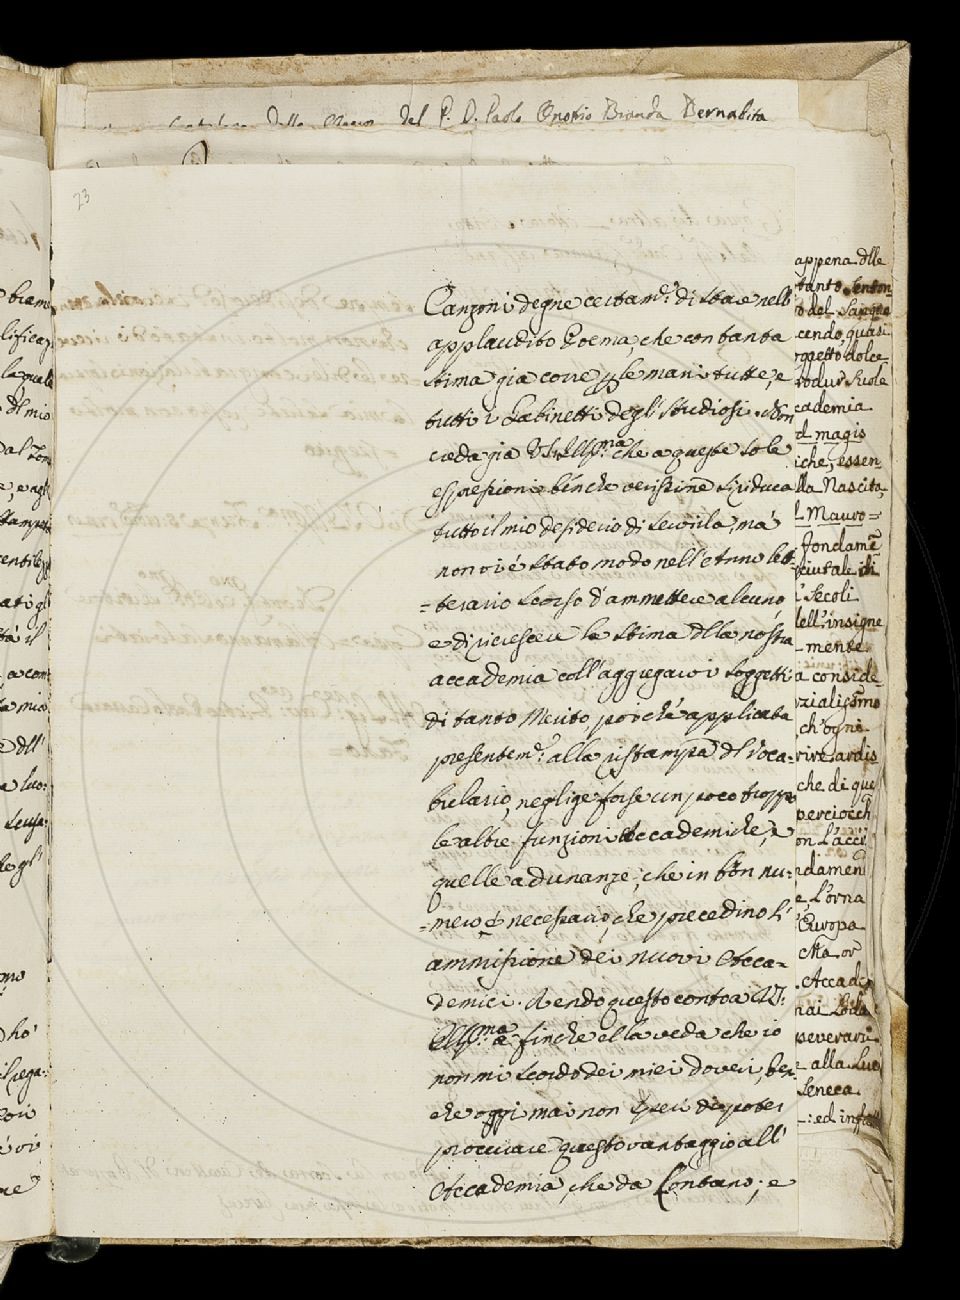 Catalogo delle Opere del P. D. Paolo Onofrio Branda Bernabita
23
Canzoni degne certam.e di stare nell'
applaudito Poema, che con tanta
stima già corre p le mani tutte, e
tutti i Gabinetti degl' Studiosi. Non
creda già V.S. Ill.ma che a queste sole
espressioni benche verissime si riduca
tutto il mio desiderio di servirla, mà
non vi è stato modo nell'Anno let-
=terario scorso d'ammettere alcuno
e di riccrescere la stima dlla nostra
accademia coll'aggregarvi soggetti
di tanto Merito, poiché applicata
presentem.e alla ristampa dl Voca-
bulario, neglige forse un poco troppo
le altre funzioni Accademiche, e
quelle adunanze, che in bon nu-
=mero è necessario, che precedino l'
ammissione dei nuovi Acca-
demici. Rendo questo conto a V.S.
Ill.ma a finche ella veda che io
non mi scordo dei miei doveri, ben
che oggi mai non speri di poter
procurare questo vantaggio all'
Accademia, che da Lontano; e
appena dlle
tanto senton
o del Sangue
cendo, quasi
oggetto dolce
rodur suole
cademia
d magis
iche, essen
lla Nascita,
l Mauro=
fondame
sciutale di
i Secoli
dell'insigne
-mente
a conside
rzialissmo
ch'ogni
rire ardis
che di que
perciocch
on l'acci
ndamen
e, l'orna
Europa
Ma or
Accade
mai Loda
peverari
e alla Luc
Seneca
: ed infatt
bram
lificaz
la quale
dl mio
al Tom
e, e agl
stampa
entile
ati gl
tà il
a com
a mia
e dll'
a luo:
scusa
le gl'
mo
hò
il prega:
è vi